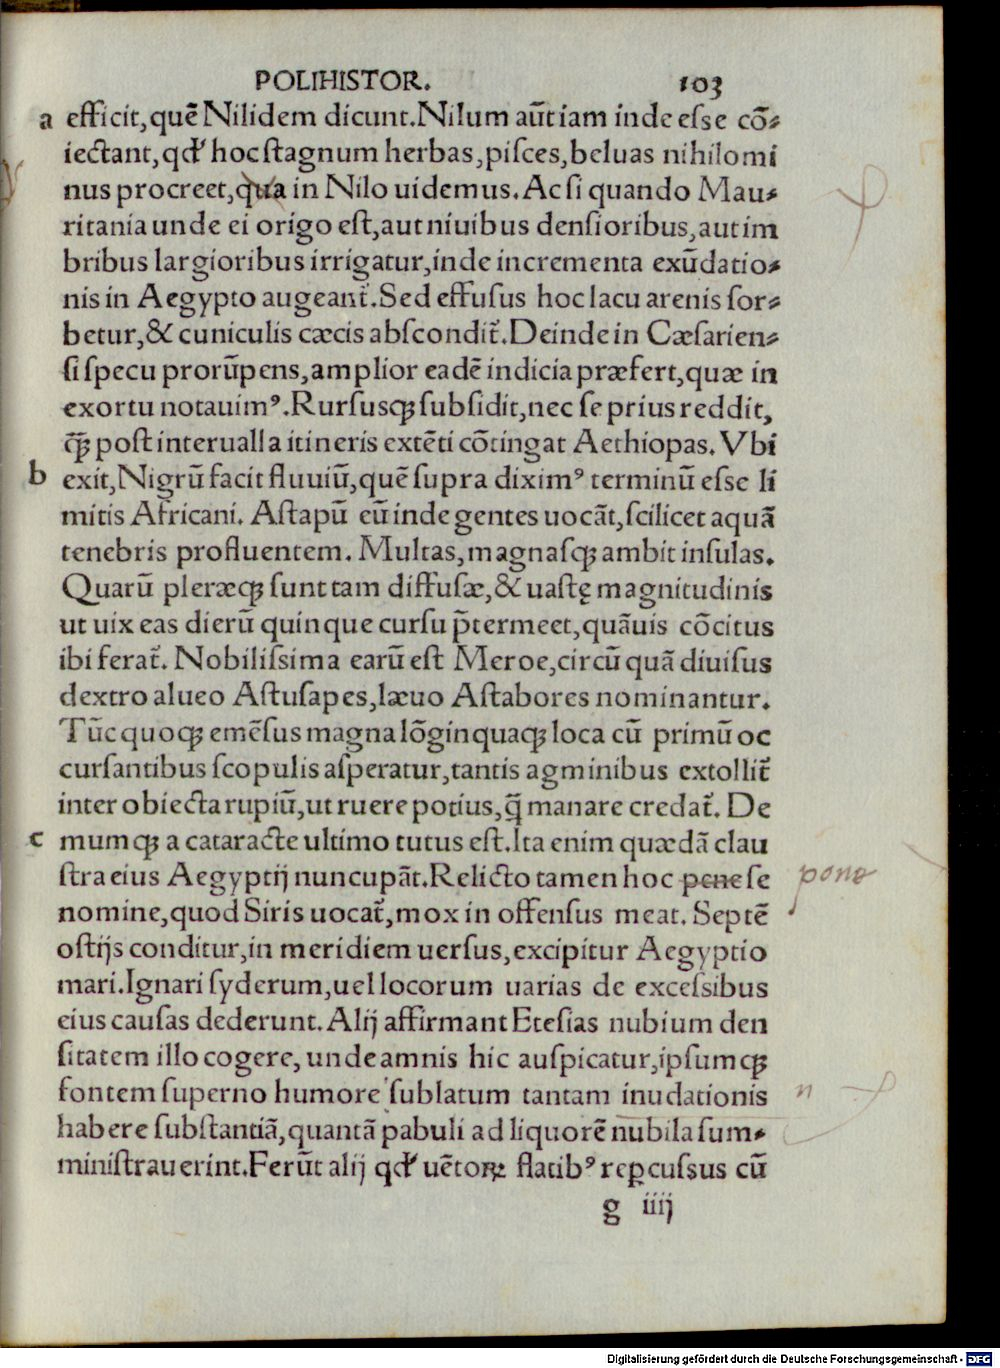 POLIHISTOR. 103
a efficit,quē Nilidem dicunt.Nilum aūt iam inde esse cō⸗
iectant,qđ hoc stagnum herbas,pisces,beluas nihilomi
nus procreet,qua in Nilo uidemus.Ac si quando Mau⸗
ritania unde ei origo est,aut niuibus densioribus,aut im
bribus largioribus irrigatur,inde incrementa exūdatio⸗
nis in Aegypto augeant̄.Sed effusus hoc lacu arenis sor⸗
betur,& cuniculis cæcis abscondit̄.Deinde in Cæsarien⸗
si specu prorūpens,amplior eadē indicia præfert,quæ in
exortu notauimꝰ.Rursusqꝫ subsidit,nec se prius reddit,
q̄ꝫ post interualla itineris extēti cōtingat Aethiopas. Vbi
b exit,Nigrū facit fluuiū,quē supra diximꝰ terminū esse li
mitis Africani. Astapū eū inde gentes uocāt,scilicet aquā
tenebris profluentem. Multas,magnasqꝫ ambit insulas.
Quarū pleræqꝫ sunt tam diffusæ,& uastę magnitudinis
ut uix eas dierū quinque cursu p̄termeet,quāuis cōcitus
ibi ferat̄. Nobilissima earū est Meroe,circū quā diuisus
dextro alueo Astusapes,læuo Astabores nominantur.
Tūc quoqꝫ emēsus magna lōginquaqꝫ loca cū primū oc
cursantibus scopulis asperatur,tantis agminibus extollit̄
inter obiecta rupiū,ut ruere potius,q̄ manare credat̄. De
c mumqꝫ a cataracte ultimo tutus est.Ita enim quædā clau
stra eius Aegyptij nuncupāt.Relicto tamen hoc pene se pone
nomine,quod Siris uocat̄,mox in offensus meat. Septē
ostijs conditur,in meridiem uersus,excipitur Aegyptio
mari.Ignari syderum,uel locorum uarias de excessibus
eius causas dederunt.Alij affirmant Etesias nubium den
sitatem illo cogere, unde amnis hic auspicatur,ipsumqꝫ
fontem superno humore sublatum tantam inudationis n
habere substantiā,quantā pabuli ad liquorē nubila sum⸗
ministrauerint.Ferūt alij qđ uētoꝝ flatibꝰ reꝑcussus cū
g iiij
Digitalisierung gefördert durch die Deutsche Forschungsgemeinschaft - DFG